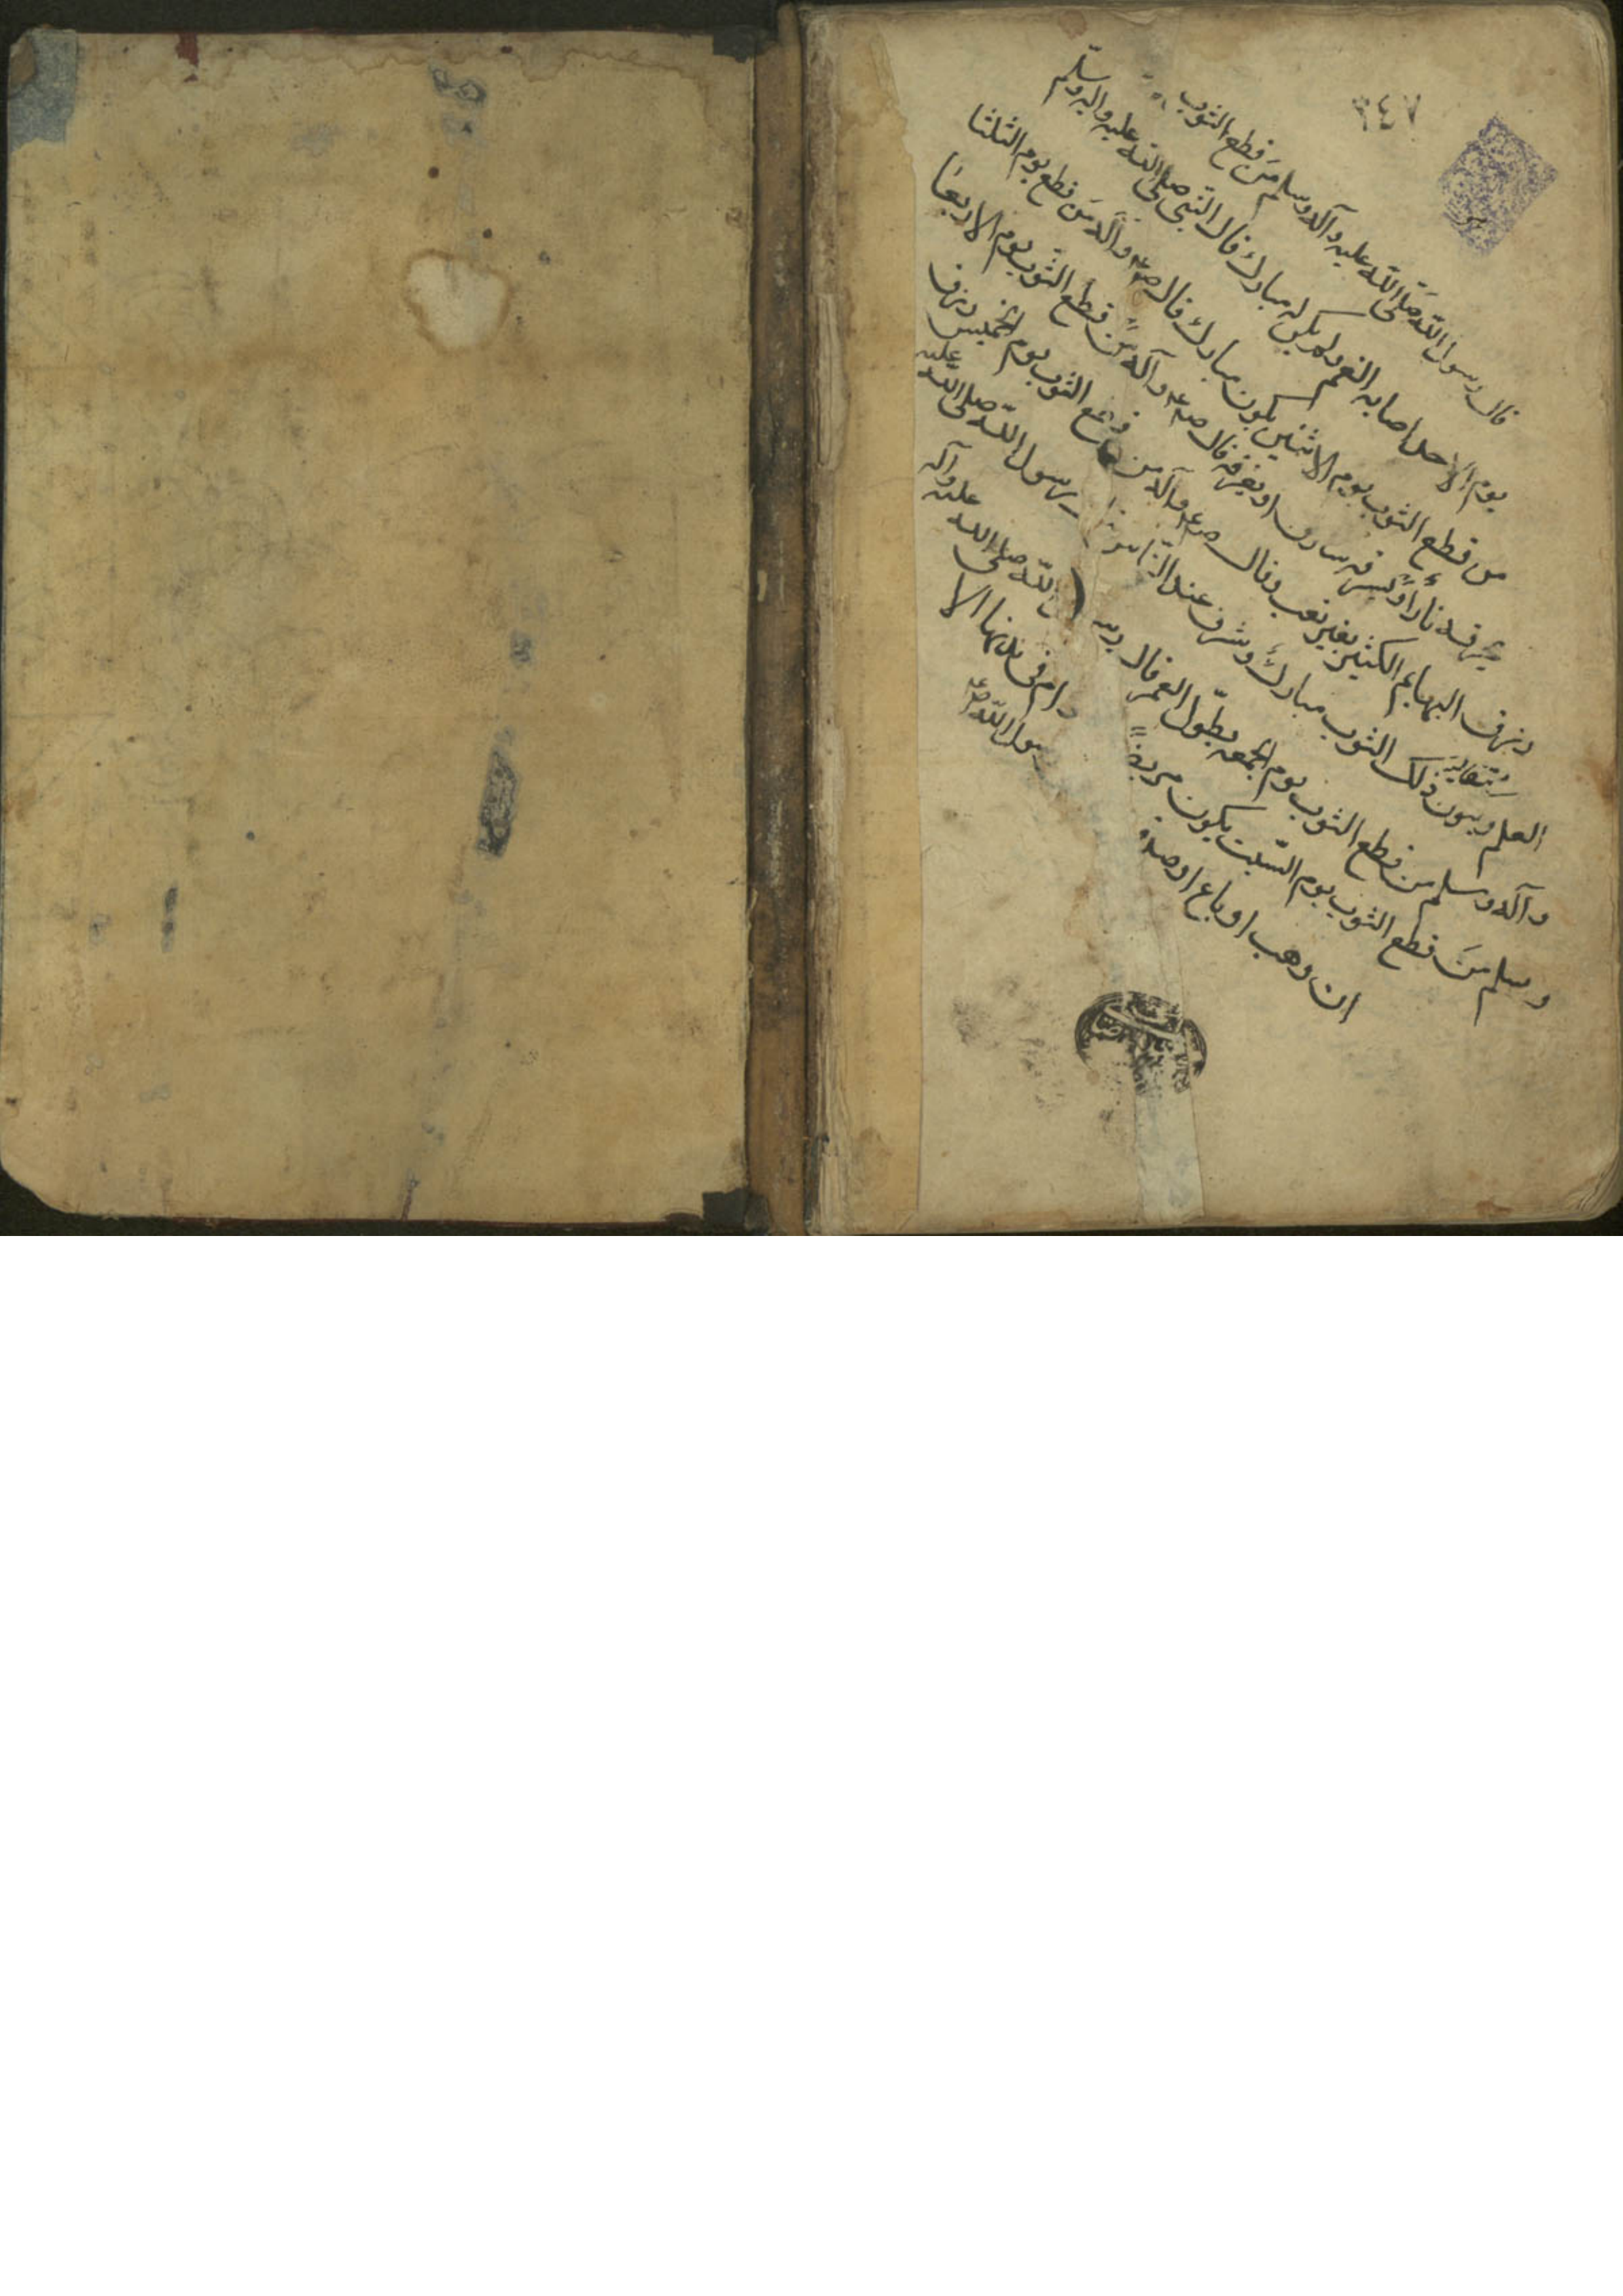 ٣٤٧
قال رسول الله صلى الله عليه وآله وسلم من قطع الثوب
يوم الاحد اصابه الغم ولم يكن له مبارك قال النبي صلى الله عليه واله وسلم
من قطع الثوب يوم الاثنين يكون مبارك قال صلعم وآله من قطع يوم الثلثا
يحرقه نارا او يسرقه سارق او يغرقه قال صلعم وآله من قطع الثوب يوم الاربعا
ويرزق البهايم الكثير بغير تعب وقال صلعم وآله من قطع الثوب يوم الخميس ويرزق
العلم ويكون ذلك الثوب مبارك وشرف عند الناس رسول الله صلى الله عليه
وآله وسلم من قطع الثوب يوم الجمعه يطول العمر قال الله صلى الله عليه وآله
وسلم من قطع الثوب يوم السبت يكون مريضا دام في بدنه الا
ان وهب او باع او صدقه رسول الله صلعم